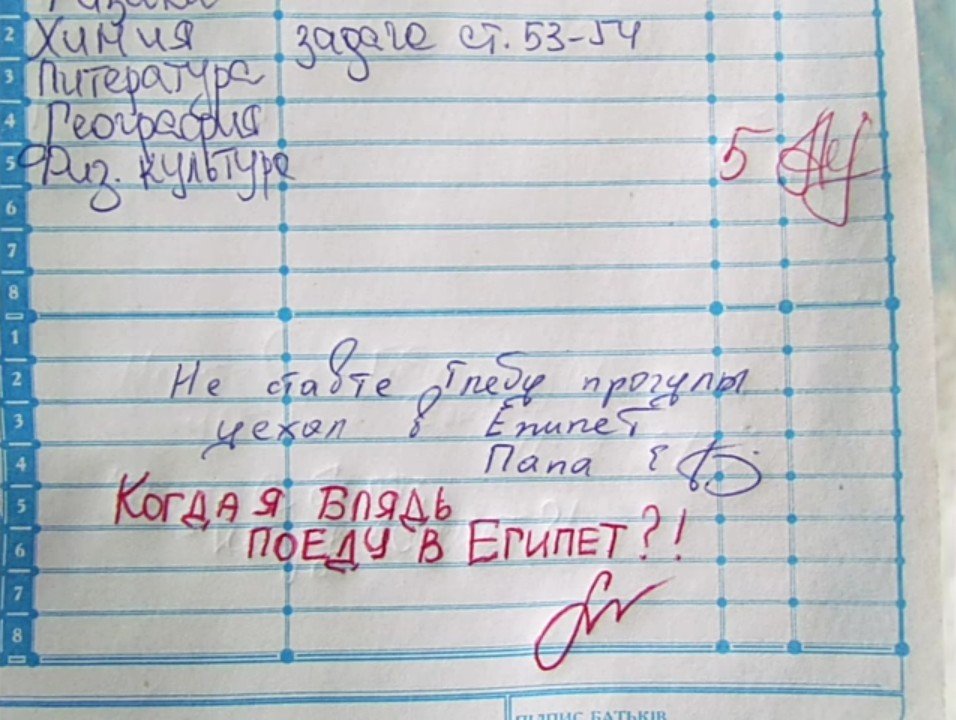 Физика
2 Химия задаче ст. 53-54
3 Литература
4 География
5 Физ. культура 5
6
7
8
1
2 Не ставте Глебу прогулы
3 уехал в Епипет
4 Папа
5 Когда я блядь
6 поеду в Египет?!
7
8
ПІДПИС БАТЬКІВ